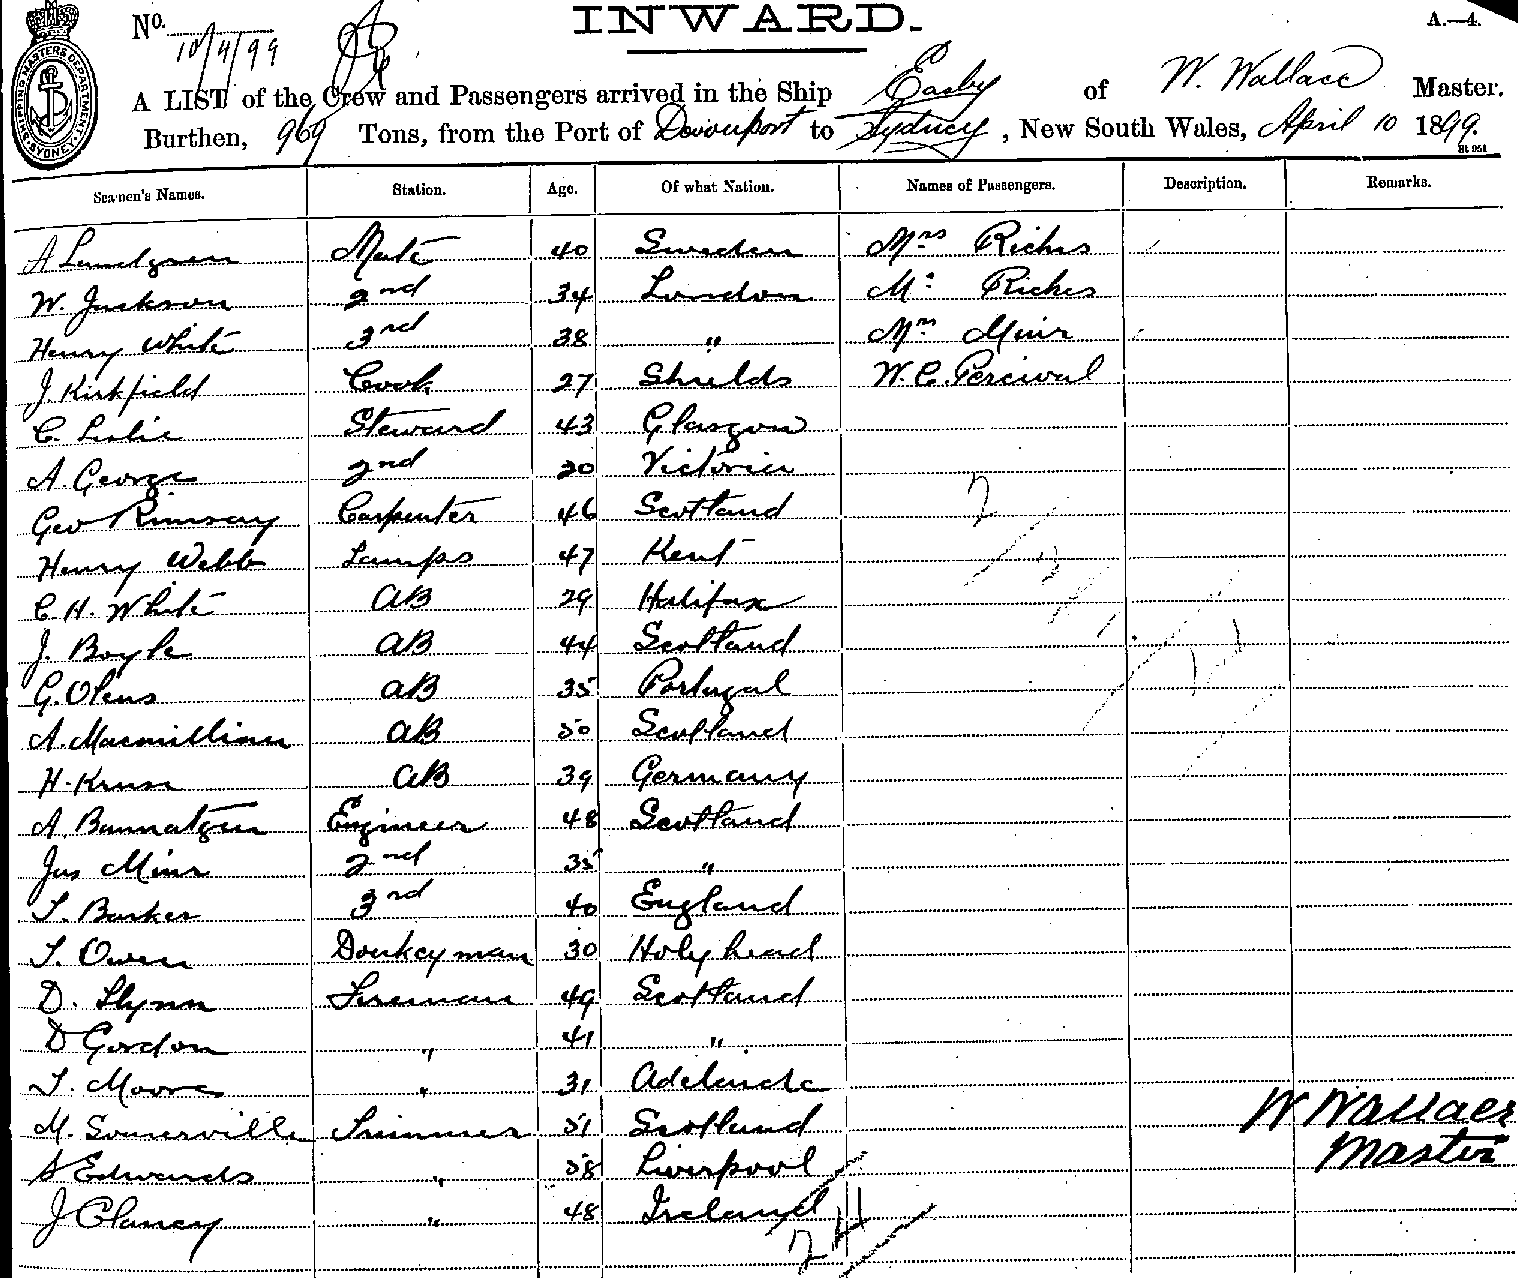 INWARD.
A.—4.
No.
10/4/99
SHIPPING MASTERS DEPARTMENT SYDNEY
A LIST of the Crew and Passengers arrived in the Ship Easby of W. Wallace Master.
Burthen, 969 Tons, from the Port of Devonport to Sydney, New South Wales, April 10 1899.
St 951
Seamen's Names. Station. Age. Of what Nation. Names of Passengers. Description. Remarks.
A Lundgren Mate 40 Sweden Mrs Riches
W. Jackson 2nd 34 London Mr Riches
Henry White 3rd 38 " Mrs Muir
J. Kirkfield Cook 27 Shields W. C. Percival
C. Leslie Steward 43 Glasgow
A. George 2nd 20 Victoria
Geo Ramsay Carpenter 46 Scotland
Henry Webb Lamps 47 Kent
C. H. White AB 29 Halifax
J. Boyle AB 44 Scotland
G. Olens AB 35 Portugal
A. Macmillian AB 50 Scotland
H. Kruse AB 39 Germany
A. Bannatyne Engineer 48 Scotland
Jas Muir 2nd 35 "
T. Barker 3rd 40 England
T. Owen Donkeyman 30 Holyhead
D. Flynn Fireman 49 Scotland
D Gordon " 41 "
T. Moore " 31 Adelaide
M. Somerville Trimmer 51 Scotland
S Edwards " 58 Liverpool
J Clancy " 48 Ireland
W Wallace
Master
24